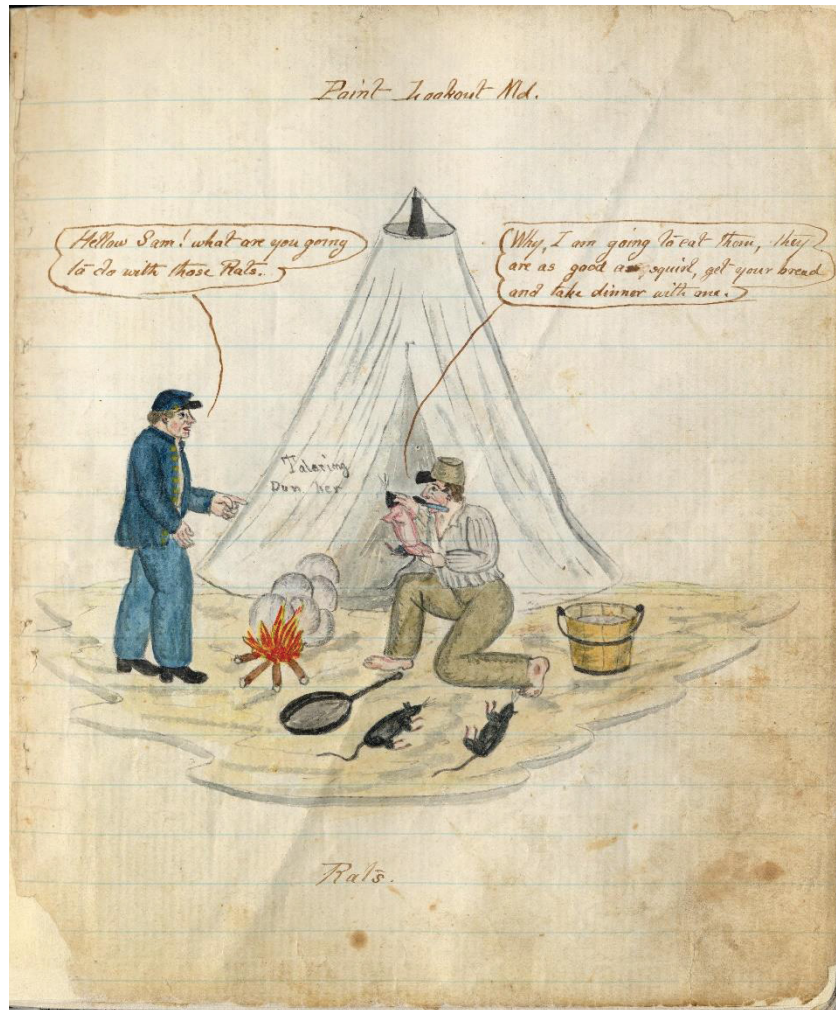 Point Lookout Md.
Hellow Sam! what are you going
to do with those Rats..
Why, I am going to eat them, they
are as good as, squirl, get your bread
and take dinner with me.
Taloring
Dun her
Rats.